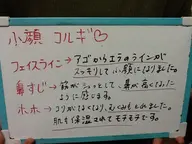 小顔 コルギ♡
フェイスライン→アゴからエラのラインが
スッキリして小顔になりました。
鼻すじ→筋がシュッとして、鼻が高くなった
ように感じます。
ホホ→コリがほぐれ、むくみもとれました。
肌も保湿されてモチモチです。